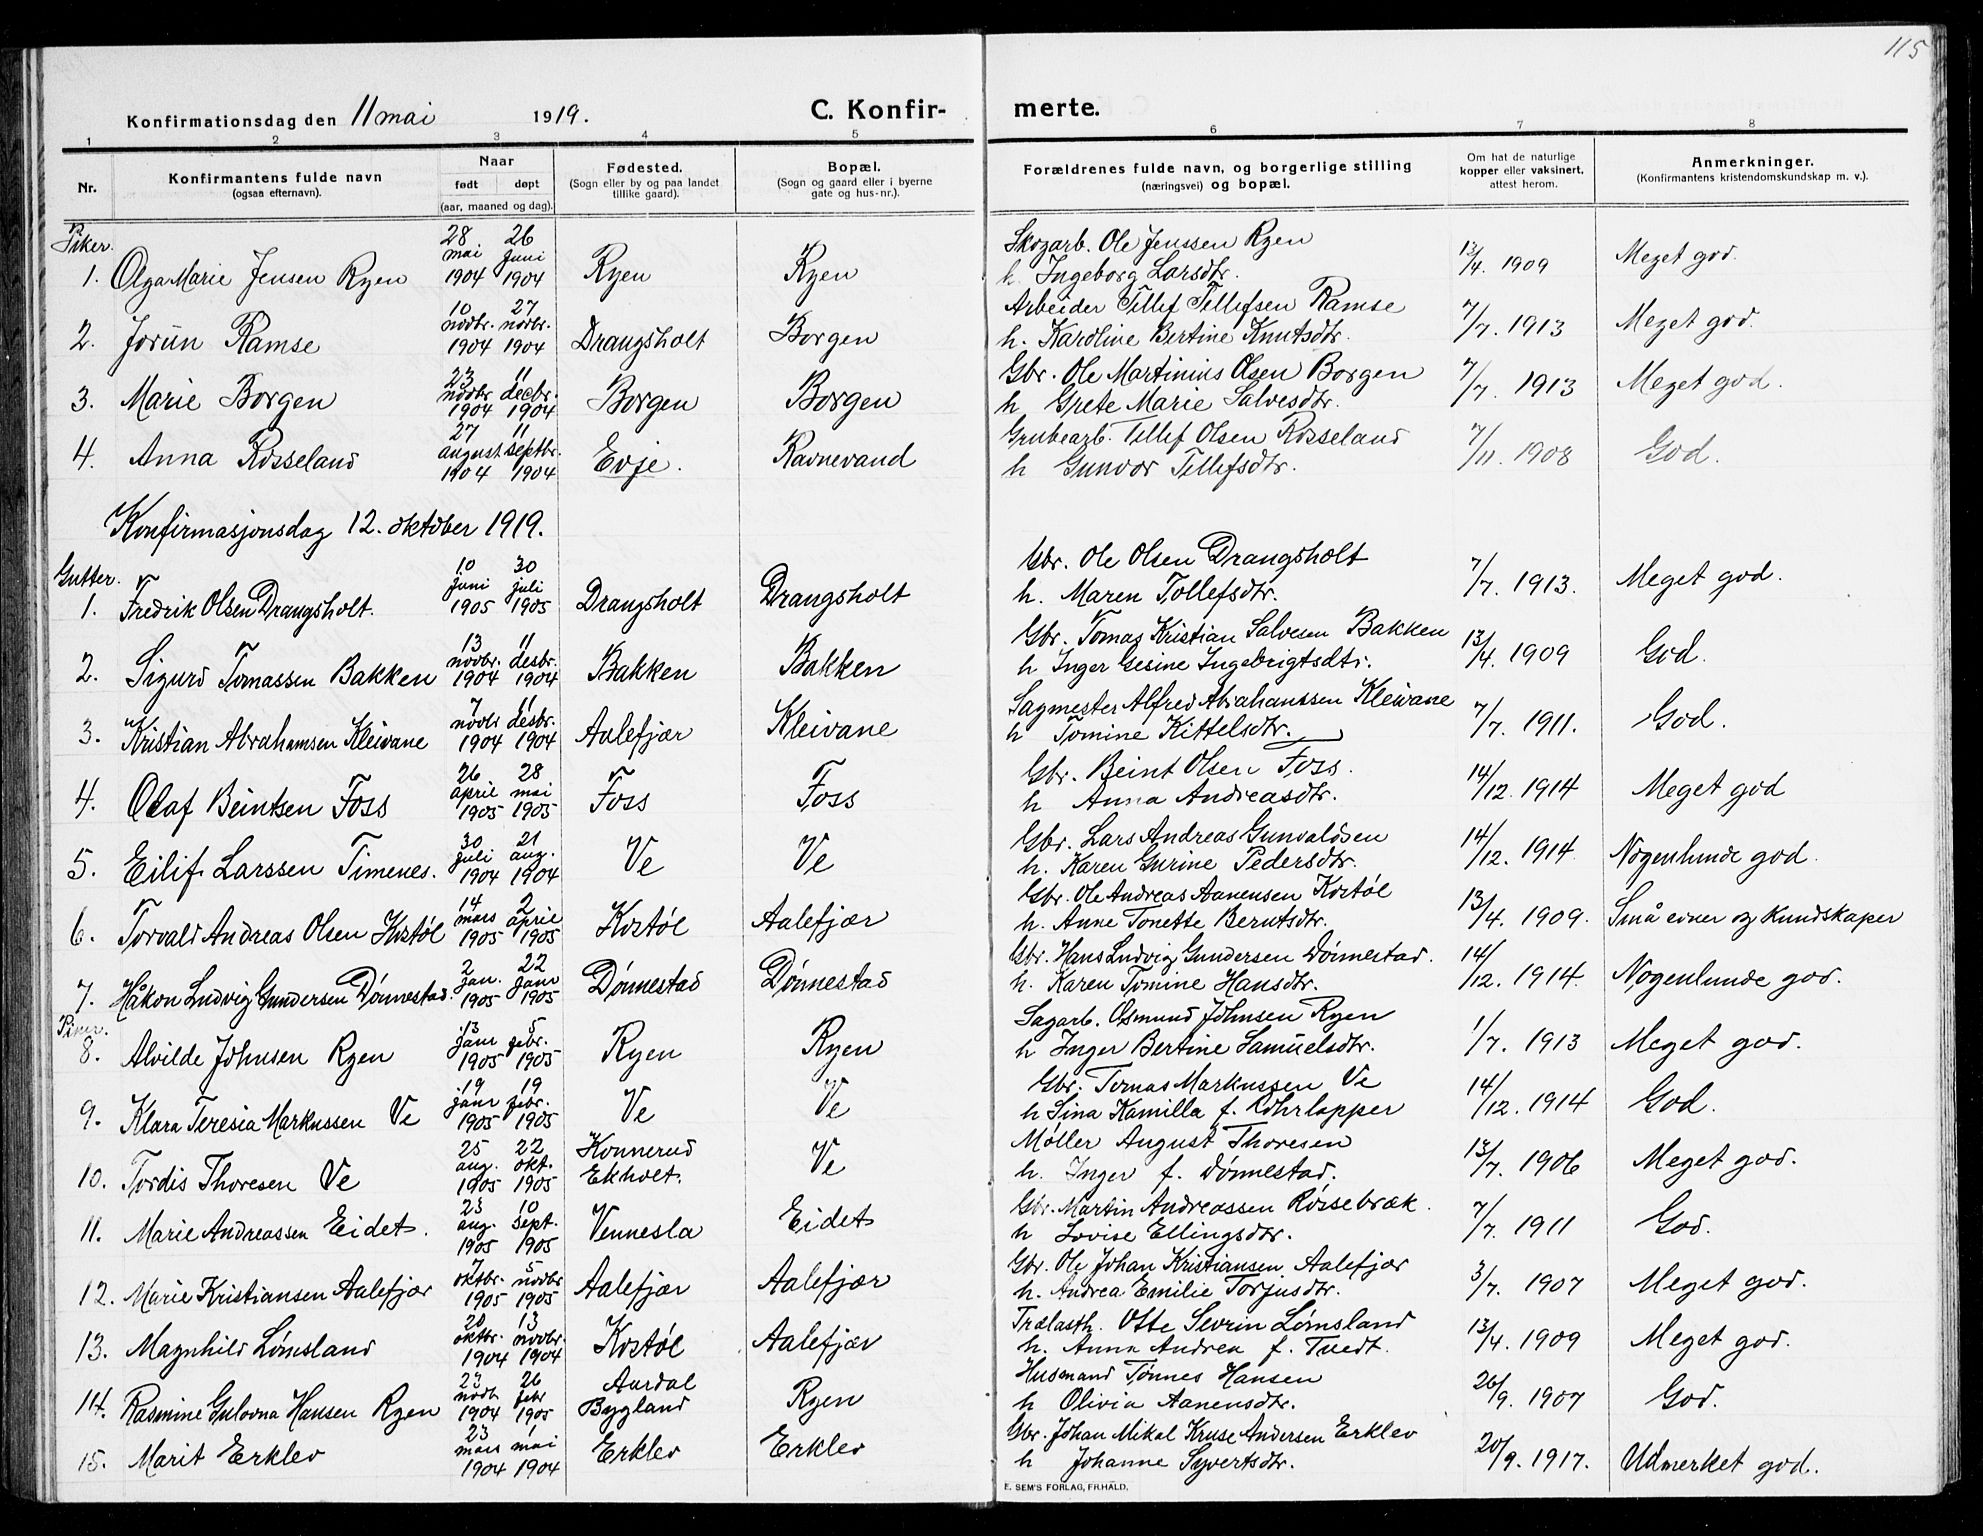 115
Konfirmationsdag den 11 mai 1919.
C. Konfirmerte.
1 2 3 4 5 6 7 8
Nr.
Konfirmantens fulde navn
(ogsaa efternavn).
Naar
født døpt
(aar, maaned og dag).
Fødested.
(Sogn eller by og paa landet
tillike gaard).
Bopæl.
(Sogn og gaard eller i byerne
gate og hus-nr.).
Forældrenes fulde navn, og borgerlige stilling
(næringsvei) og bopæl.
Om hat de naturlige
kopper eller vaksinert,
attest herom.
Anmerkninger.
(Konfirmantens kristendomskundskap m. v.).
Piker.
1. Olga Marie Jensen Ryen 28 mai 1904 26 juni 1904 Ryen Ryen Skogarb. Ole Jenssen Ryen h. Ingeborg Larsdtr. 13/4. 1909 Meget god.
2. Jorun Ramse 10 novbr. 1904 27 novbr. 1904 Drangsholt Borgen Arbeider Tellef Tellefsen Ramse h. Karoline Bertine Knutsdtr. 7/7. 1913 Meget god.
3. Marie Borgen 23 novbr 1904 11 decbr. 1904 Borgen Borgen Gbr. Ole Martinius Olsen Borgen h Grete Marie Salvesdtr. 7/7. 1913 Meget god.
4. Anna Rosseland 27 august 1904 11 septbr. 1904 Evje. Ravnevand Grubearb. Tellef Olsen Rosseland h Gunvor Tellefsdtr. 7/11. 1908 God.
Konfirmasjonsdag 12. oktober 1919.
Gutter.
1. Fredrik Olsen Drangsholt. 10 juni 1905 30 juli 1905 Drangsholt Drangsholt Gbr. Ole Olsen Drangsholt h. Maren Tollefsdtr. 7/7. 1913. Meget god.
2. Sigurd Tomassen Bakken 13 novbr. 1904 11 desbr. 1904 Bakken Bakken Gbr. Tomas Kristian Salvesen Bakken h Inger Gesine Ingebrigtsdtr. 13/4. 1909 God.
3. Kristian Abrahamsen Kleivane 7 novbr 1904 11 desbr. 1904 Aalefjær Kleivane Sagmester Alfred Abrahamssen Kleivane h Tomine Kittelsdtr. 7/7. 1911. God.
4. Olaf Beintsen Foss 26 april 1905 28 mai 1905 Foss Foss Gbr. Beint Olsen Foss. h Anna Andreasdtr. 14/12. 1914 Meget god
5. Eilif Larssen Timenes. 30 juli 1904 21 aug. 1904 Ve Ve Gbr. Lars Andreas Gunvaldsen h. Karen Gurine Pedersdtr. 14/12. 1914. Nogenlunde god.
6. Torvald Andreas Olsen Kostøl 14 mars 1905 2 april 1905 Kostøl Aalefjær Gbr. Ole Andreas Aanensen Kostøl h. Anne Tonette Berntsdtr. 13/4. 1909. Små evner og kundskaper
7. Håkon Ludvig Gundersen Dønnestad. 2 jan. 1905 22 janr 1905 Dønnestad Dønnestad Gbr. Hans Ludvig Gundersen Dønnestad. h. Karen Tomine Hansdtr. 14/12. 1914. Nogenlunde god.
Piker.
8. Alvilde Johnsen Ryen 13 janr 1905 5 febr. 1905 Ryen Ryen Sagarb. Osmund Johnsen Ryen h Inger Bertine Samuelsdtr. 1/7. 1913 Meget god.
9. Klara Teresia Markussen Ve 19 janr 1905 19 febr. 1905 Ve Ve Gbr. Tomas Markussen Ve h Lina Kamilla f. Rohrlapper 14/12. 1914 God.
10. Tordis Thoresen Ve 25 aug. 1905 22 okt. 1905 Konnerud Ekholt. Ve Møller August Thoresen h. Inger f. Dønnestad. 13/7. 1906 Meget god.
11. Marie Andreassen Eidet. 23 aug. 1905 10 sept. 1905 Vennesla Eidet Gbr. Martin Andreassen Røssebræk. h Lovise Ellingsdtr. 7/7. 1911 God.
12. Marie Kristiansen Aalefjær 7 oktbr. 1905 5 novbr 1905 Aalefjær Aalefjær Gbr. Ole Johan Kristiansen Aalefjær h. Andrea Emilie Torjusdtr. 3/7. 1907 Meget god.
13. Magnhild Lømsland 20 oktbr. 1904 13 novbr. 1904 Kostøl Aalefjær Trælasth. Otto Severin Lømsland h. Anna Andrea f. Tvedt. 13/4. 1909 Meget god.
14. Rasmine Gulovna Hansen Ryen 23 novb. 1904 26 febr 1905 Aardal Bygland Ryen Husmand Tønnes Hansen h Olivia Aanensdtr. 26/9. 1907 God.
15. Marit Erklev 23 mars 1904 1 mai 1904 Erklev Erklev Gbr. Johan Mikal Kruse Andersen Erklev h Johanne Syvertsdtr. 20/9. 1917. Udmerket god.
E. SEM'S FORLAG, FR.HALD.